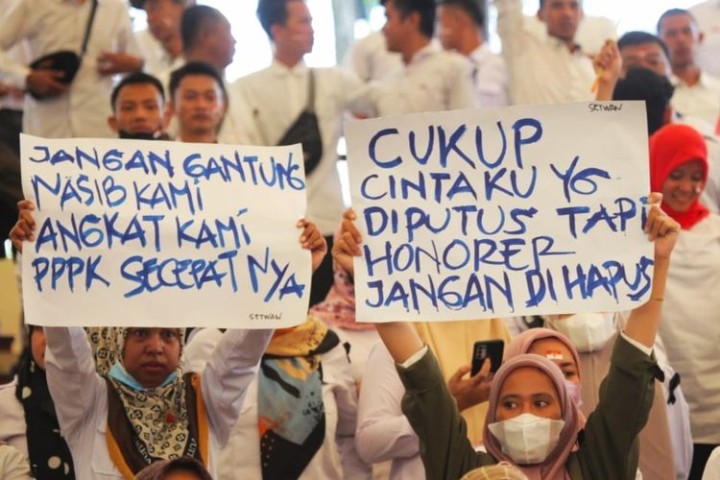 JANGAN GANTUNG
NASIB KAMI
ANGKAT KAMI
PPPK SECEPAT NYA
SETWAN
SETWAN
CUKUP
CINTAKU YG
DIPUTUS TAPI
HONORER
JANGAN DI HAPUS